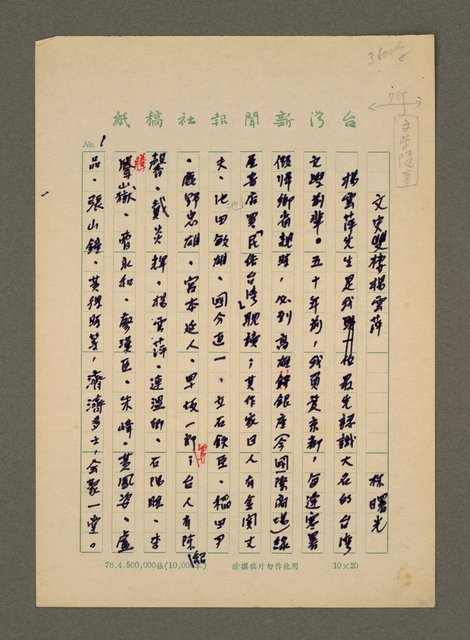 3600字
文學隨筆
台灣新聞報社稿紙
No. 1
文史雙棲楊雲萍
林曙光
楊雲萍先生是我第一位最先認識大名的台灣
文學前輩。五十年前,我負笈京都,每逢寒暑
假歸鄉省親時,必到高雄銀座(今國際商場)綠
屋書店買「民俗台灣」耽讀;其作家日人有金関丈
夫、池田敏雄、國分直一、立石鐵臣、稲田尹
、鹿野忠雄、宮本延人、早坂一郎等;台人有陳紹
馨、戴炎輝、楊雲萍、連溫卿、石陽睢、李
騰嶽、曹永和、廖漢臣、朱鋒、黃鳳姿、盧
品、張山鐘、黃得時等,濟濟多士,会聚一堂。
78.4.500,000張(10,000本)
除撰稿片勿作他用
10×20